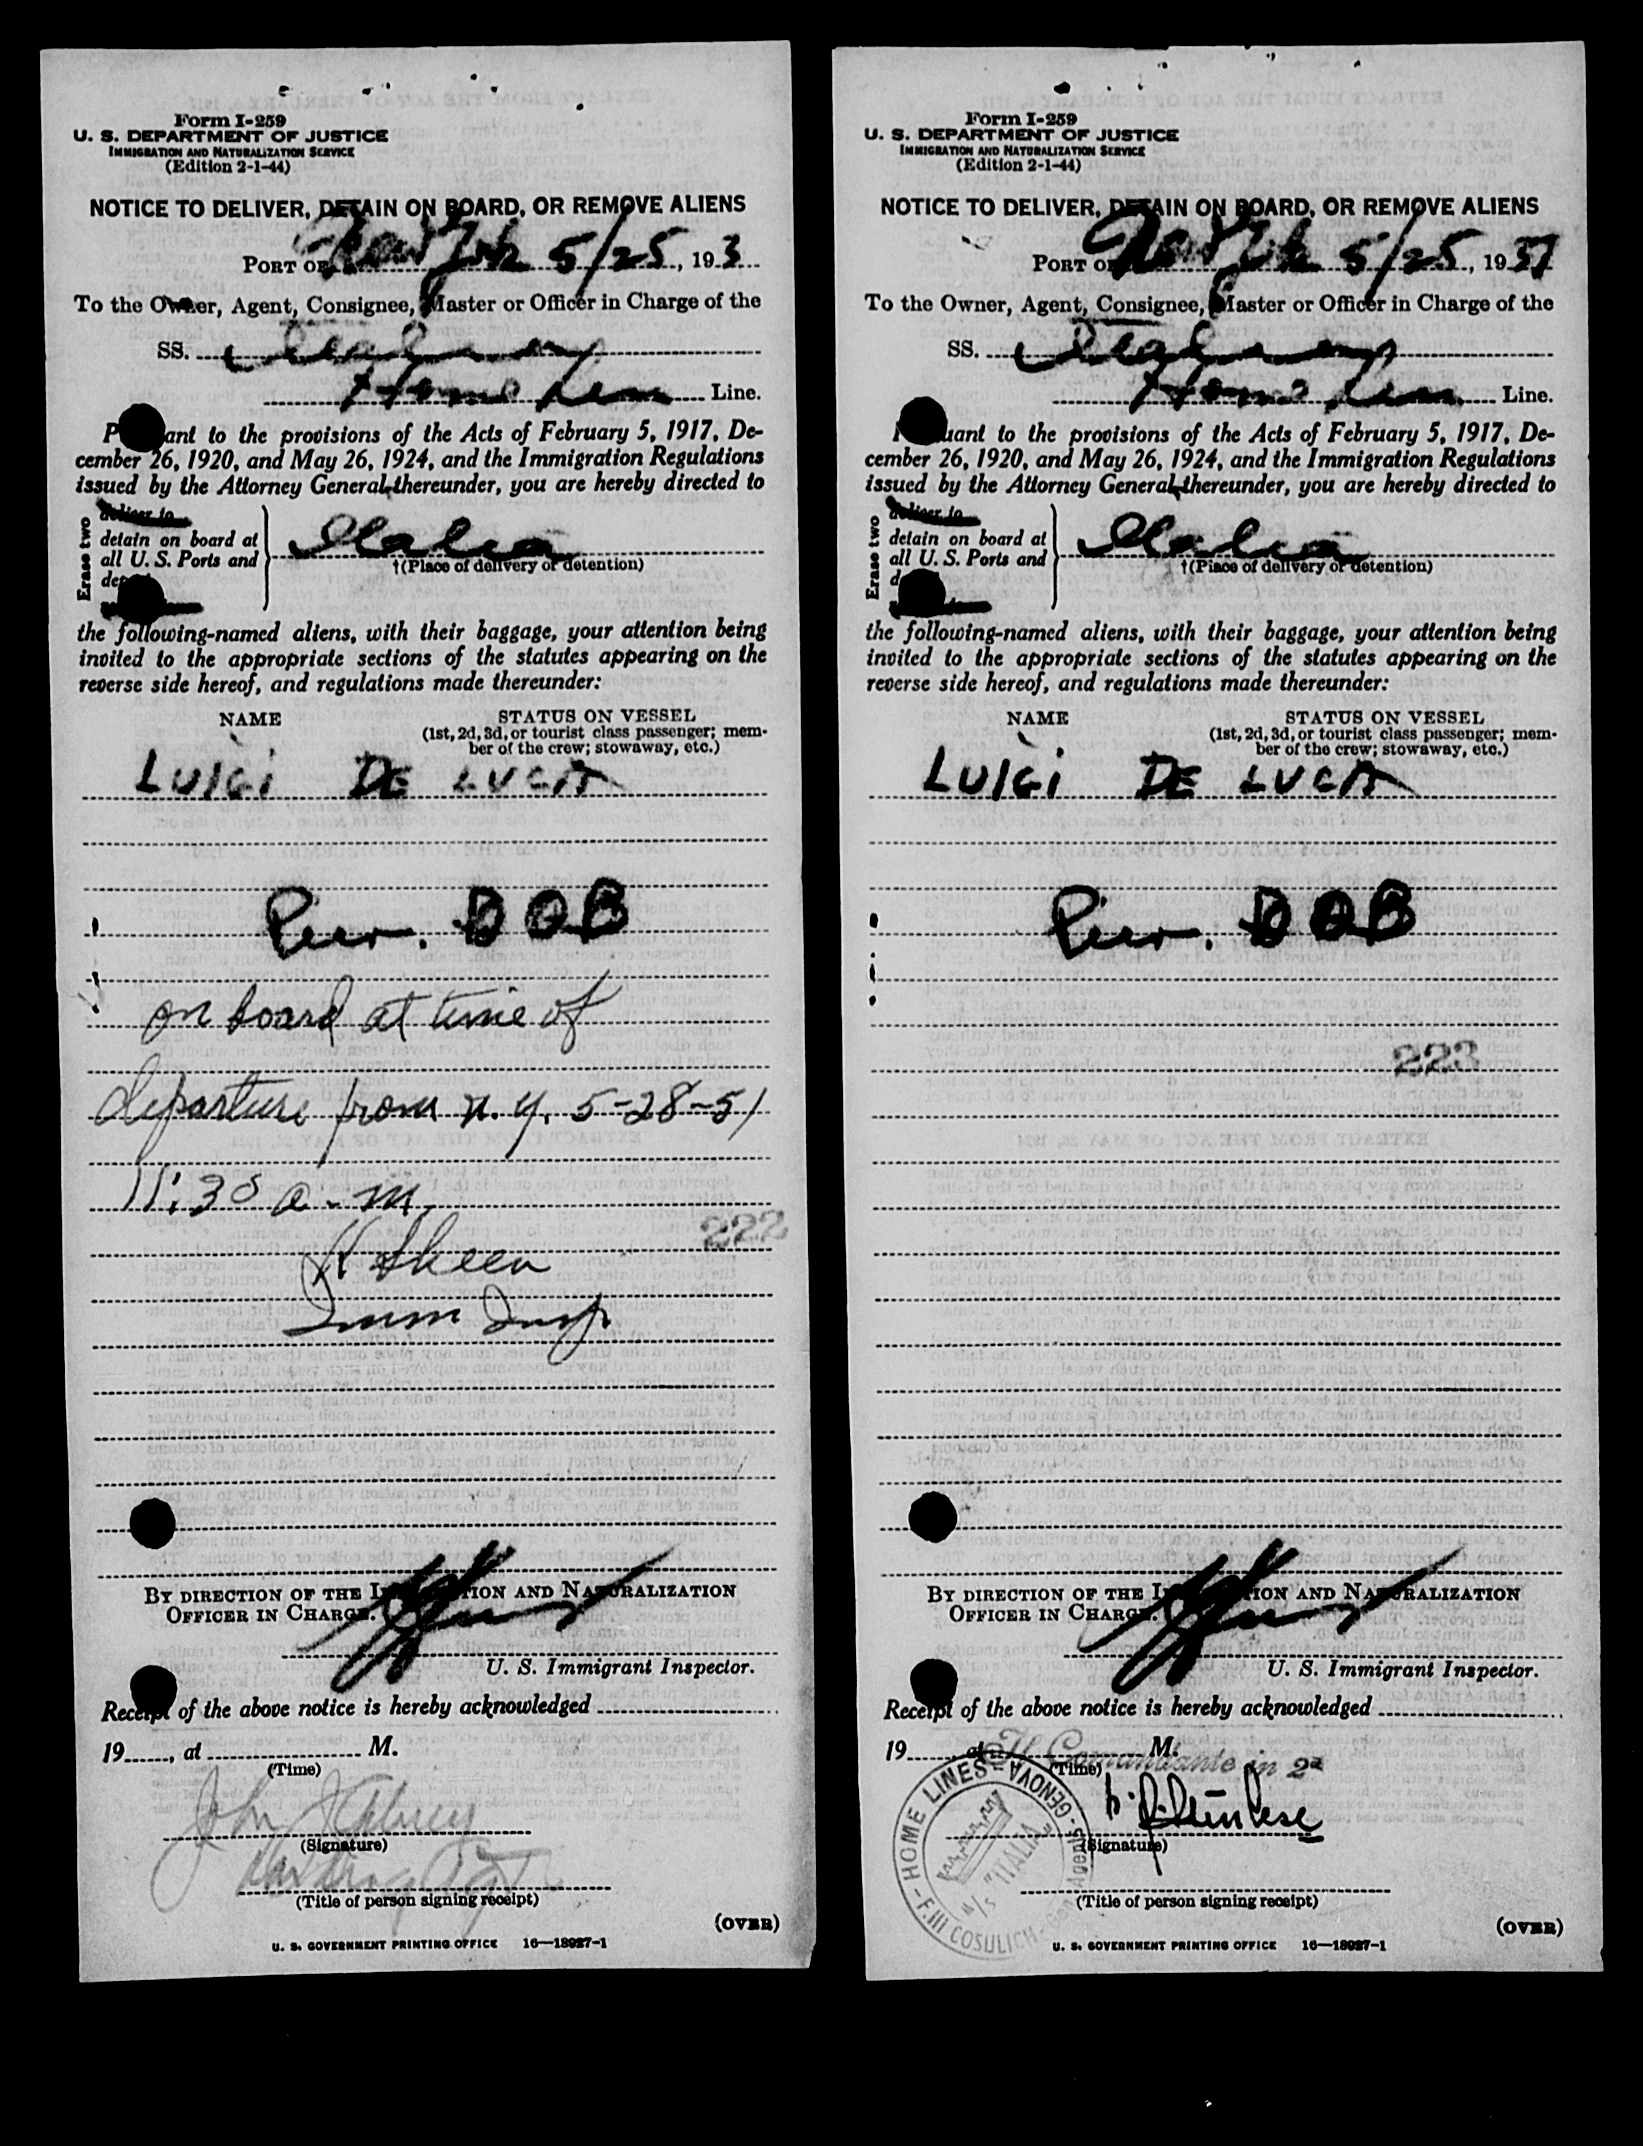 Form I-259
U. S. DEPARTMENT OF JUSTICE
IMMIGRATION AND NATURALIZATION SERVICE
(Edition 2-1-44)
NOTICE TO DELIVER, DETAIN ON BOARD, OR REMOVE ALIENS
PORT OF New York 5/25, 193
To the Owner, Agent, Consignee, Master or Officer in Charge of the
SS.
Home Lines Line.
Pursuant to the provisions of the Acts of February 5, 1917, De-
cember 26, 1920, and May 26, 1924, and the Immigration Regulations
issued by the Attorney General thereunder, you are hereby directed to
Erase two
deliver to
detain on board at
all U. S. Ports and
Italia
†(Place of delivery or detention)
the following-named aliens, with their baggage, your attention being
invited to the appropriate sections of the statutes appearing on the
reverse side hereof, and regulations made thereunder:
NAME STATUS ON VESSEL
(1st, 2d, 3d, or tourist class passenger; mem-
ber of the crew; stowaway, etc.)
LUIGI DE LUCA
DOB
on board at time of
departure from n. y. 5-28-51
11:30 a-m.
222
Skeen
Imm Insp
BY DIRECTION OF THE IMMIGRATION AND NATURALIZATION
OFFICER IN CHARGE.
U. S. Immigrant Inspector.
Receipt of the above notice is hereby acknowledged
19, at M.
(Time)
John
(Signature)
(Title of person signing receipt)
(OVER)
U. S. GOVERNMENT PRINTING OFFICE 16—18927-1
Form I-259
U. S. DEPARTMENT OF JUSTICE
IMMIGRATION AND NATURALIZATION SERVICE
(Edition 2-1-44)
NOTICE TO DELIVER, DETAIN ON BOARD, OR REMOVE ALIENS
PORT OF New York 5/25, 1951
To the Owner, Agent, Consignee, Master or Officer in Charge of the
SS.
Home Lines Line.
Pursuant to the provisions of the Acts of February 5, 1917, De-
cember 26, 1920, and May 26, 1924, and the Immigration Regulations
issued by the Attorney General thereunder, you are hereby directed to
Erase two
deliver to
detain on board at
all U. S. Ports and
Italia
†(Place of delivery or detention)
the following-named aliens, with their baggage, your attention being
invited to the appropriate sections of the statutes appearing on the
reverse side hereof, and regulations made thereunder:
NAME STATUS ON VESSEL
(1st, 2d, 3d, or tourist class passenger; mem-
ber of the crew; stowaway, etc.)
LUIGI DE LUCA
DOB
223
BY DIRECTION OF THE IMMIGRATION AND NATURALIZATION
OFFICER IN CHARGE.
U. S. Immigrant Inspector.
Receipt of the above notice is hereby acknowledged
19, at M.
Il Comandante in 2a
(Time)
(Signature)
HOME LINES - GENOVA - Agents - F.lli COSULICH
M/S "ITALIA"
(Title of person signing receipt)
(OVER)
U. S. GOVERNMENT PRINTING OFFICE 16—18927-1